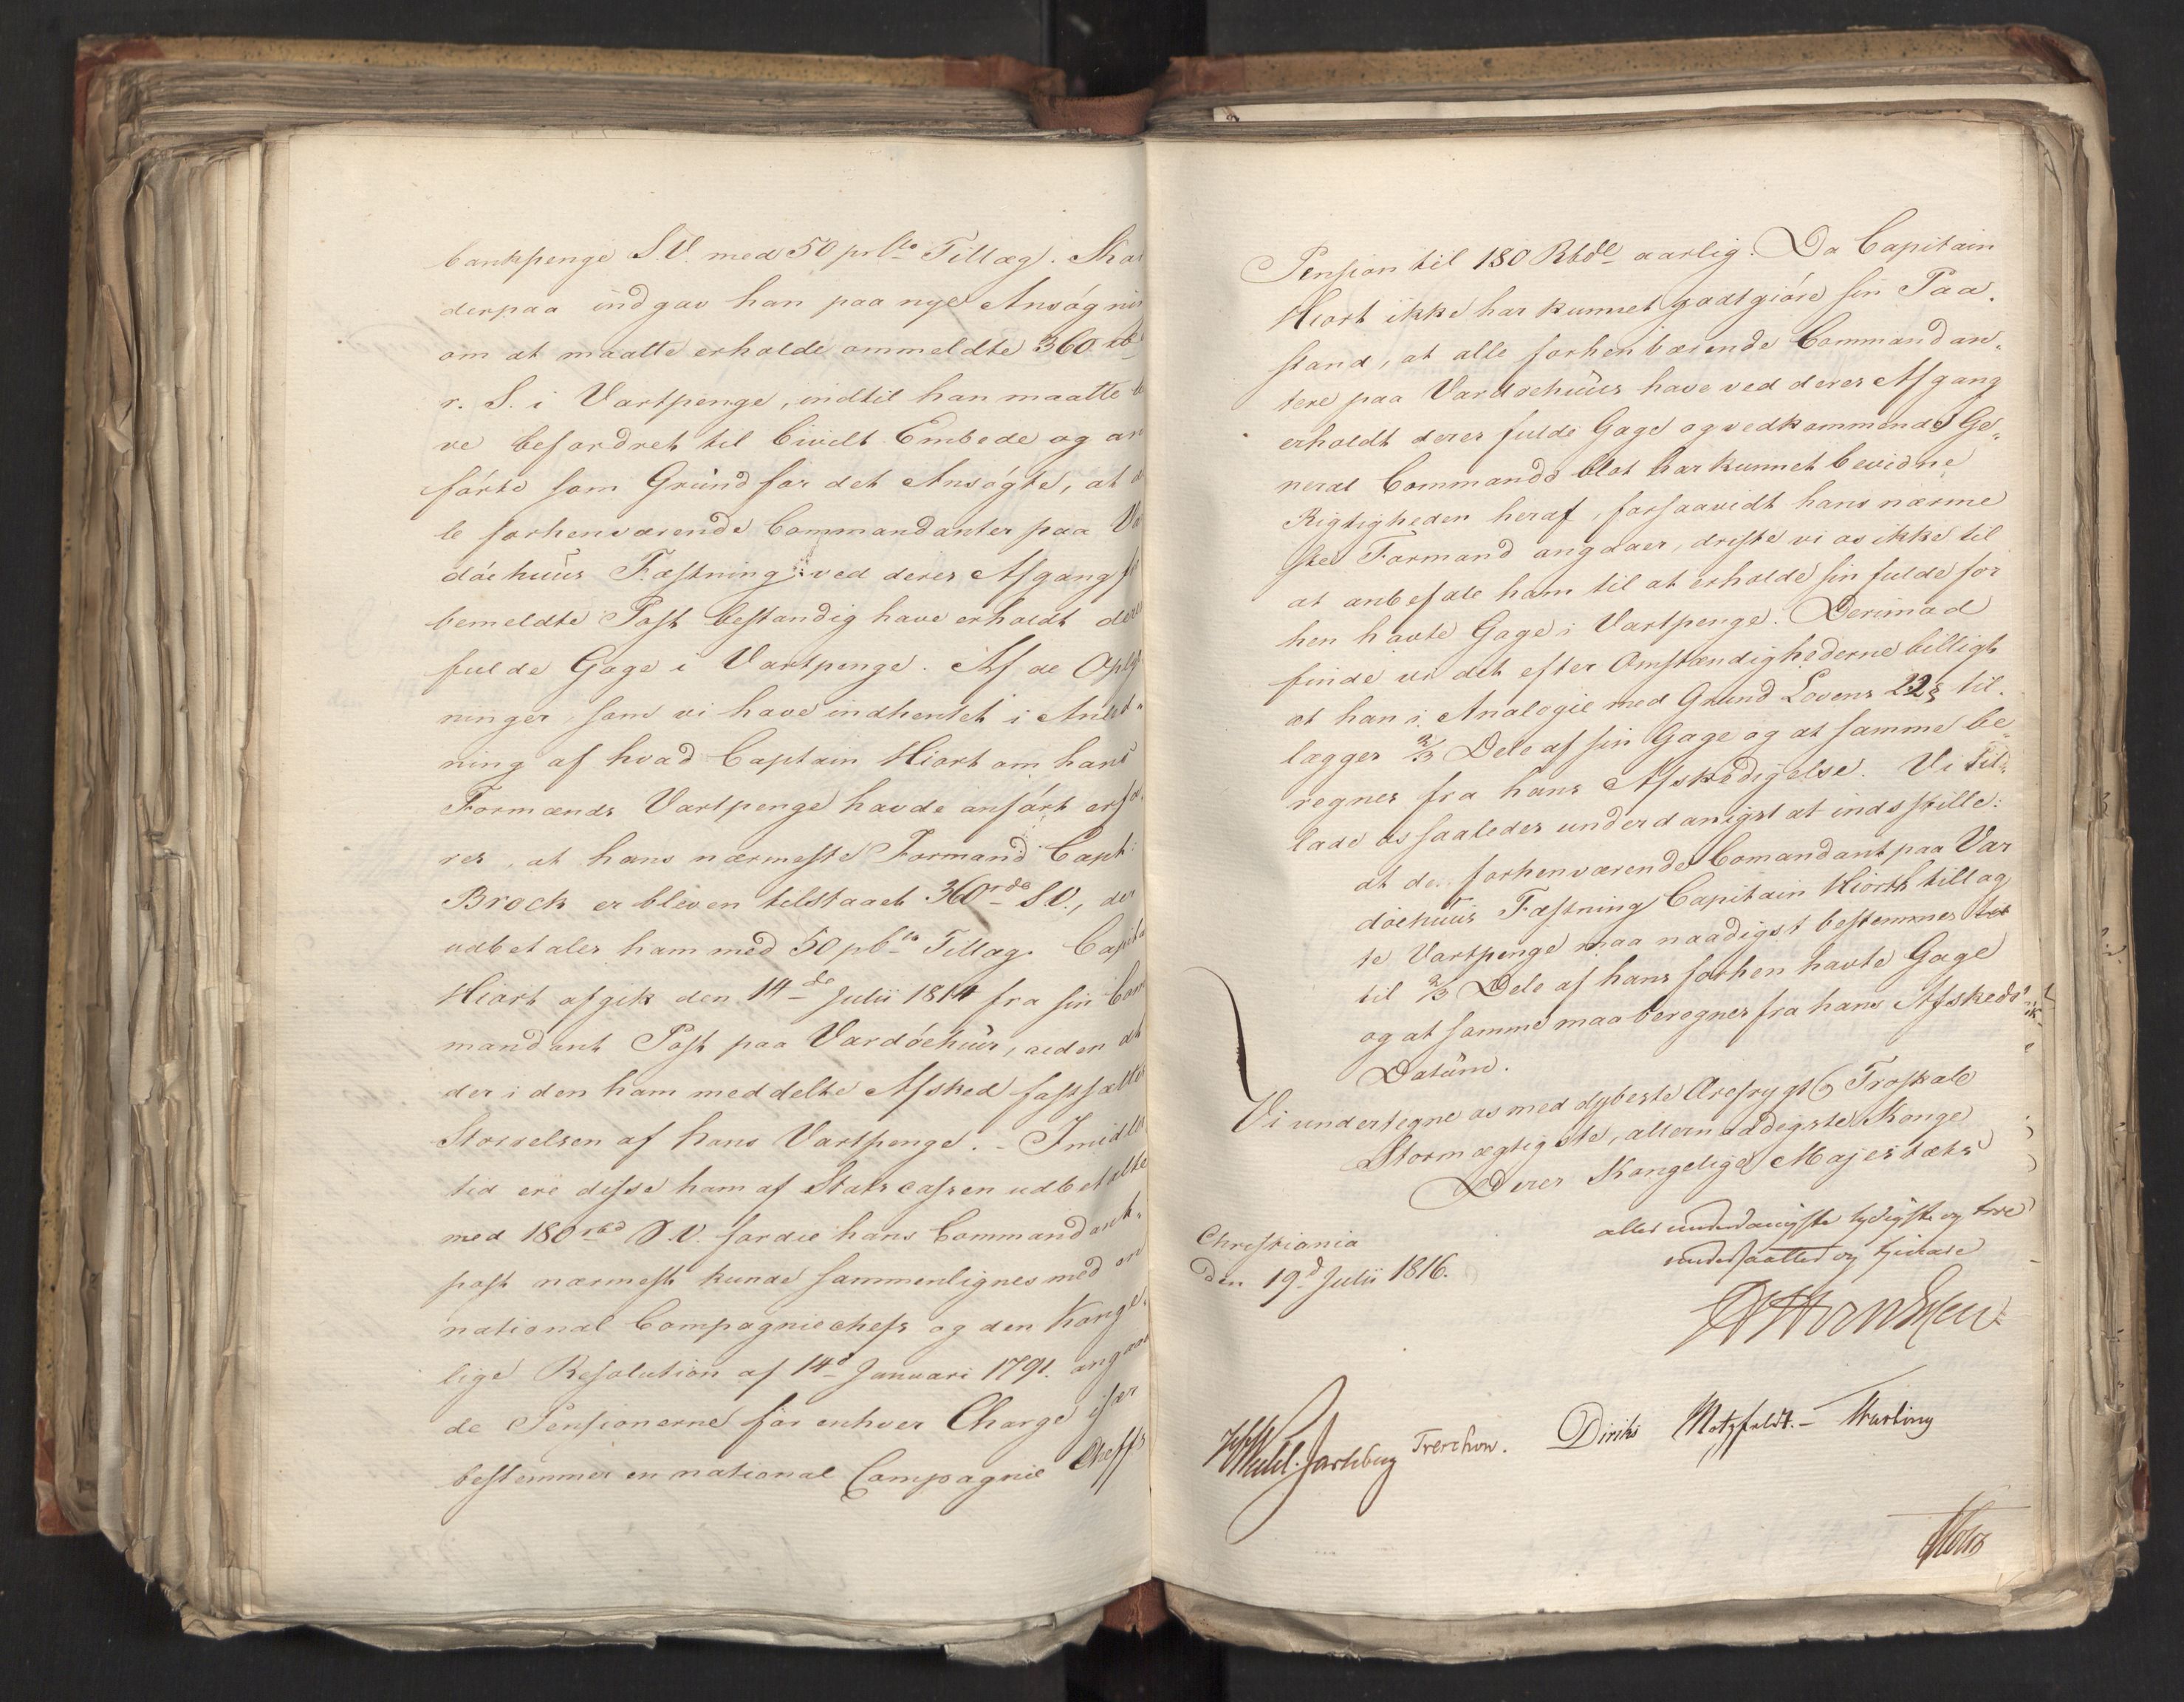 bankpenge S.V. med 50 prCto Tillæg. Skal
derpaa indgav han paa nye Ansøgnin
om at maatte erholde ommeldte 360 rb
r. S. i Vartpenge, indtil han maatte bli
ve befordret til Civilt Embede og an
førte som Grund for det Ansøgte, at al
le forhenværende Commandanter paa Va
döehuus Fæstning ved deres Afgang fr
bemeldte Post bestandig have erholdt deres
fulde Gage i Vartpenge. Af de Oplys
ninger, som vi have indhentet i Anled-
ning af hvad Captain Hiort om hans
Formænds Vartpenge havde anført erfa-
res, at hans nærmeste Formand Capt:
Brock er bleven tilstaaet 360 rdb S.V., der
udbetales ham med 50 pCto Tillæg. Capita
Hiort afgik den 14de Julii 1814 fra sin Com
mandant Post paa Vardöehuus, uden at
der i den ham meddelte Afsked fastsættes
Størrelsen af hans Vartpenge. - Imidler
tid ere disse ham af Statscassen udbetalte
med 180 rbd S.V. fordie hans Commandant-
post nærmest kunde sammenlignes med en
national Compagniechefs og den Konge-
lige Resolution af 14d Januari 1791. angaaen
de Pensionerne for enhver Charge især
bestemmer en national Compagnie Cheffs
Pension til 180 Rbdl aarlig. Da Capitain
Hiort ikke har kunnet godtgiøre sin Paa-
stand, at alle forhenværende Commandan-
tere paa Vardoehuus have ved deres Afgang
erholdt deres fulde Gage og vedkommende Ge-
neral Commando blot har kunnet bevidne
Rigtigheden heraf, forsaavidt hans nærme
ste Formand angaaer, driste vi os ikke til
at anbefale ham til at erholde sin fulde for
hen havte Gage i Vartpenge. Derimod
finde vi det efter Omstændighederne billigt
at han i Analogie med Grund Lovens 22 § til-
lægges 2/3 Dele af sin Gage og at samme be-
regnes fra hans Afskedigelse. Vi til-
lade os saaledes underdanigst at indstille:
at den forhenværende Comandant paa Var
döehuus Fæstning Capitain Hiorth tillag
te Vartpenge maa naadigst bestemmes til
til 2/3 Dele af hans forhen havte Gage
og at samme maa beregnes fra hans Afskeds
Datum.
Vi undertegne os med dybeste Ærefrygt og Troskab
Stormægtigste, allernaadigste Konge
Deres Kongelige Majestæts
allerunderdanigste lydigste og troe
undersaatter og tjenere
Christiania
den 19d Julii 1816.
Treschow. Diriks Motzfeldt. -